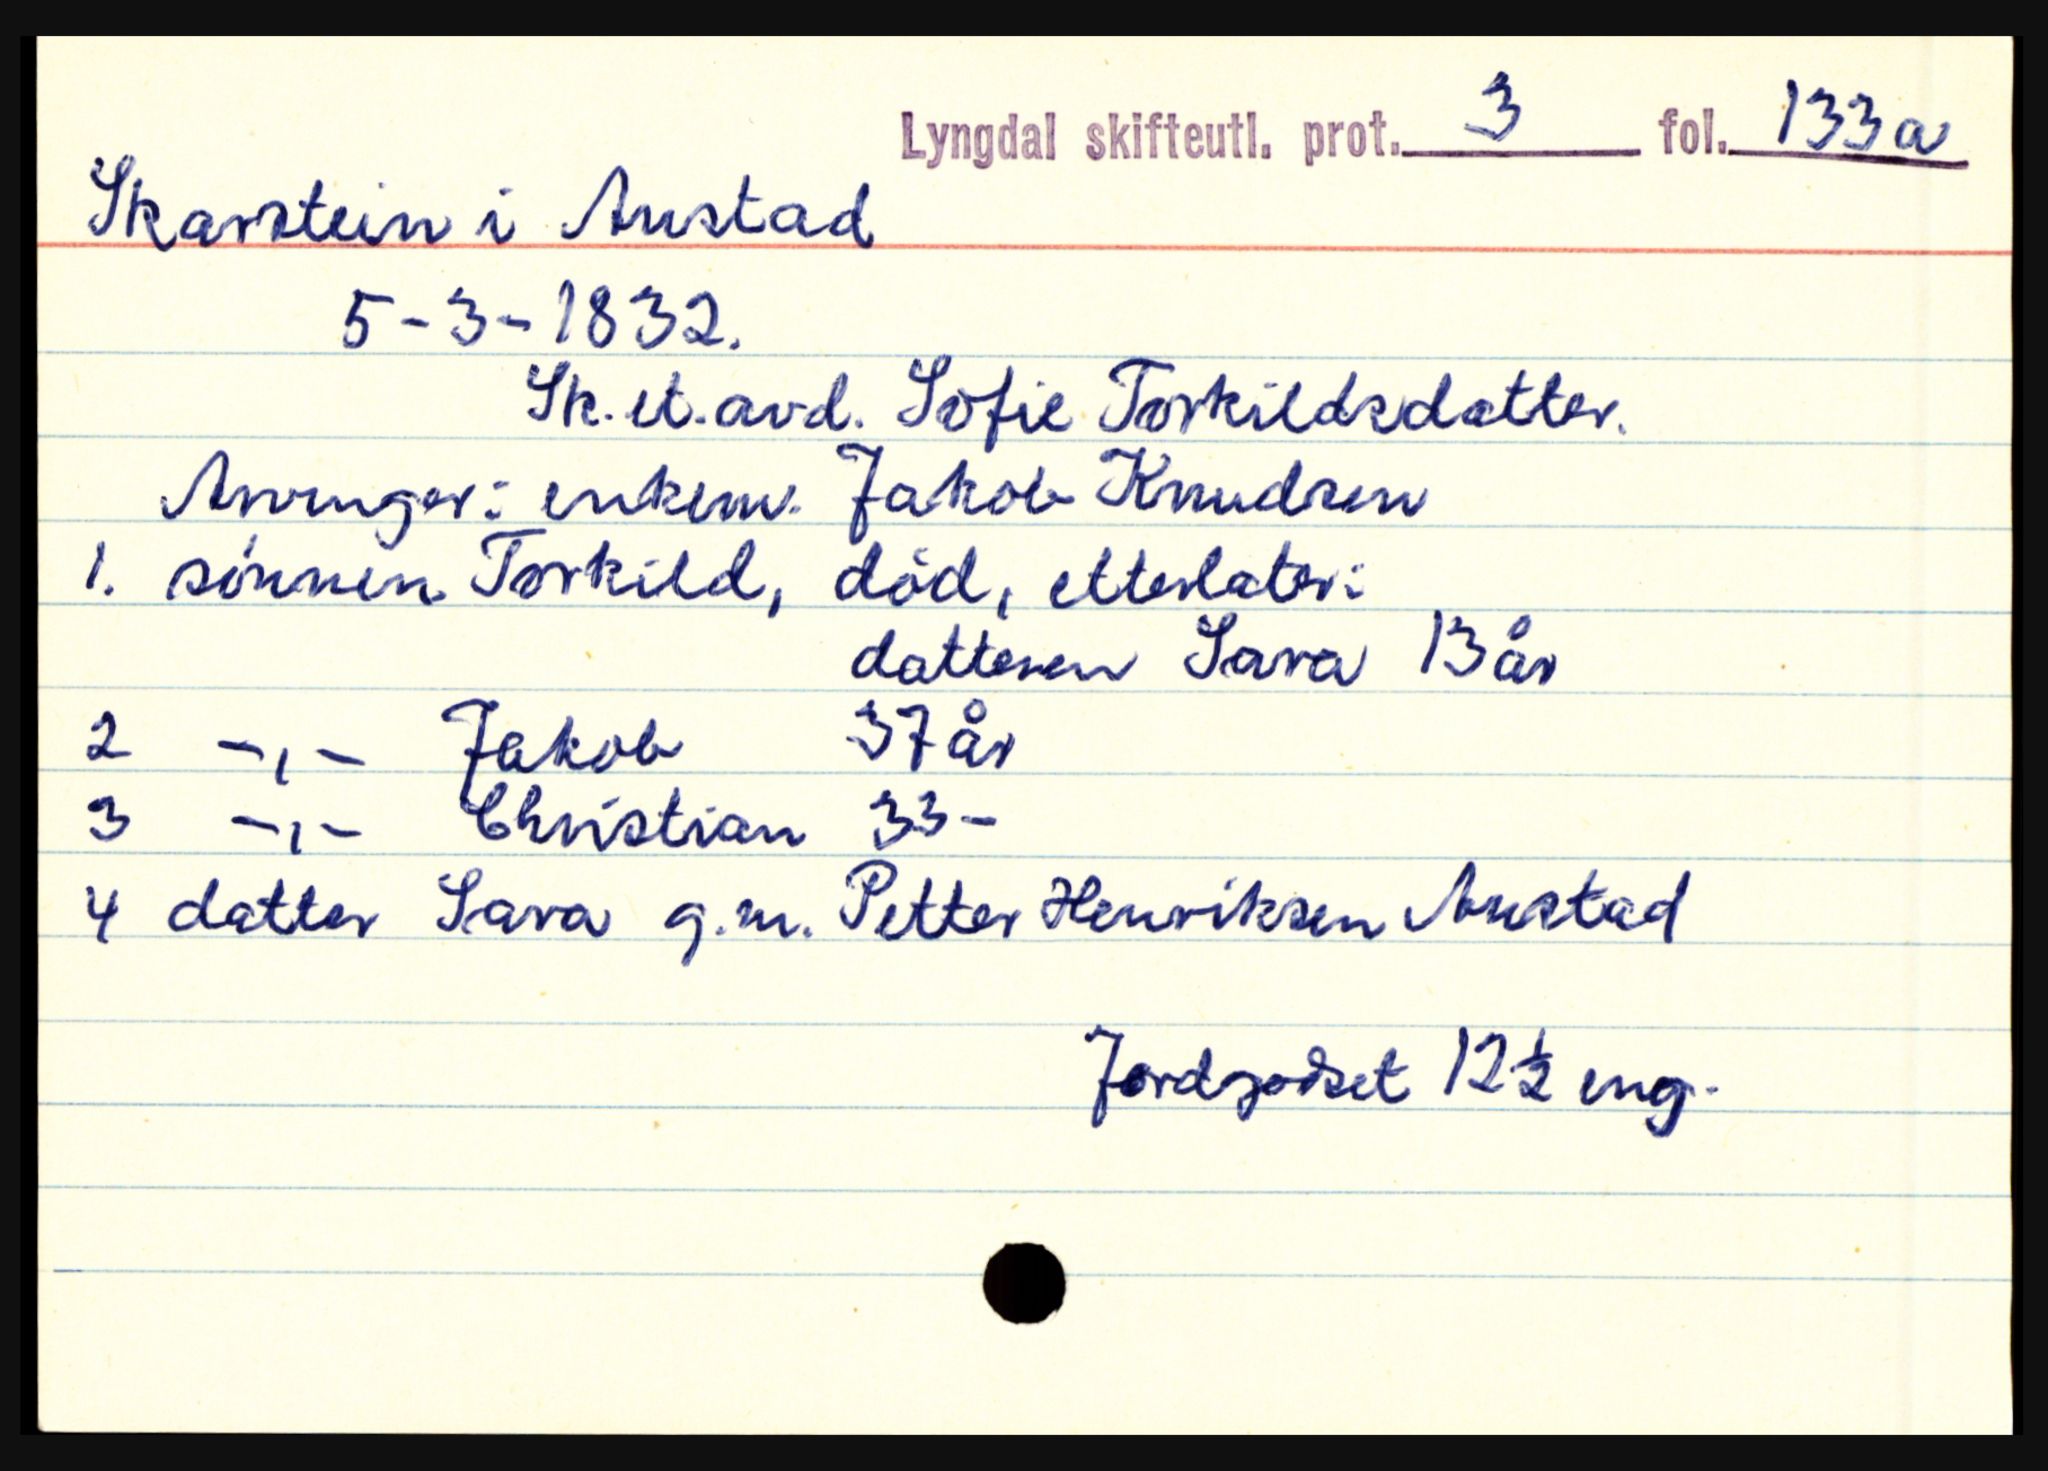 Lyngdal skifteutl. prot. 3 fol. 133a
Skarstein i Austad
5-3-1832.
Sk. et. avd. Sofie Torkildsdatter.
Arvinger: enkem. Jakob Knudsen
1. sønnen Torkild, død, etterlater:
datteren Sara 13 år
2 -,- Jakob 37 år
3 -,- Christian 33 -
4 datter Sara g.m. Petter Henriksen Austad
Jordgodset 12 ½ eng.